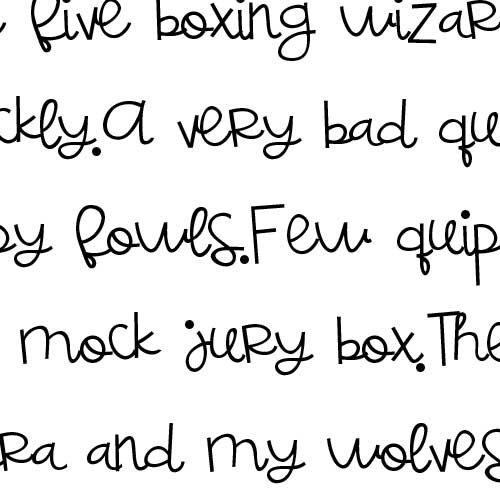 five boxing wizar
ckly.A very bad qu
by fowls.Few quip
mock jury box.The
ra and my wolves